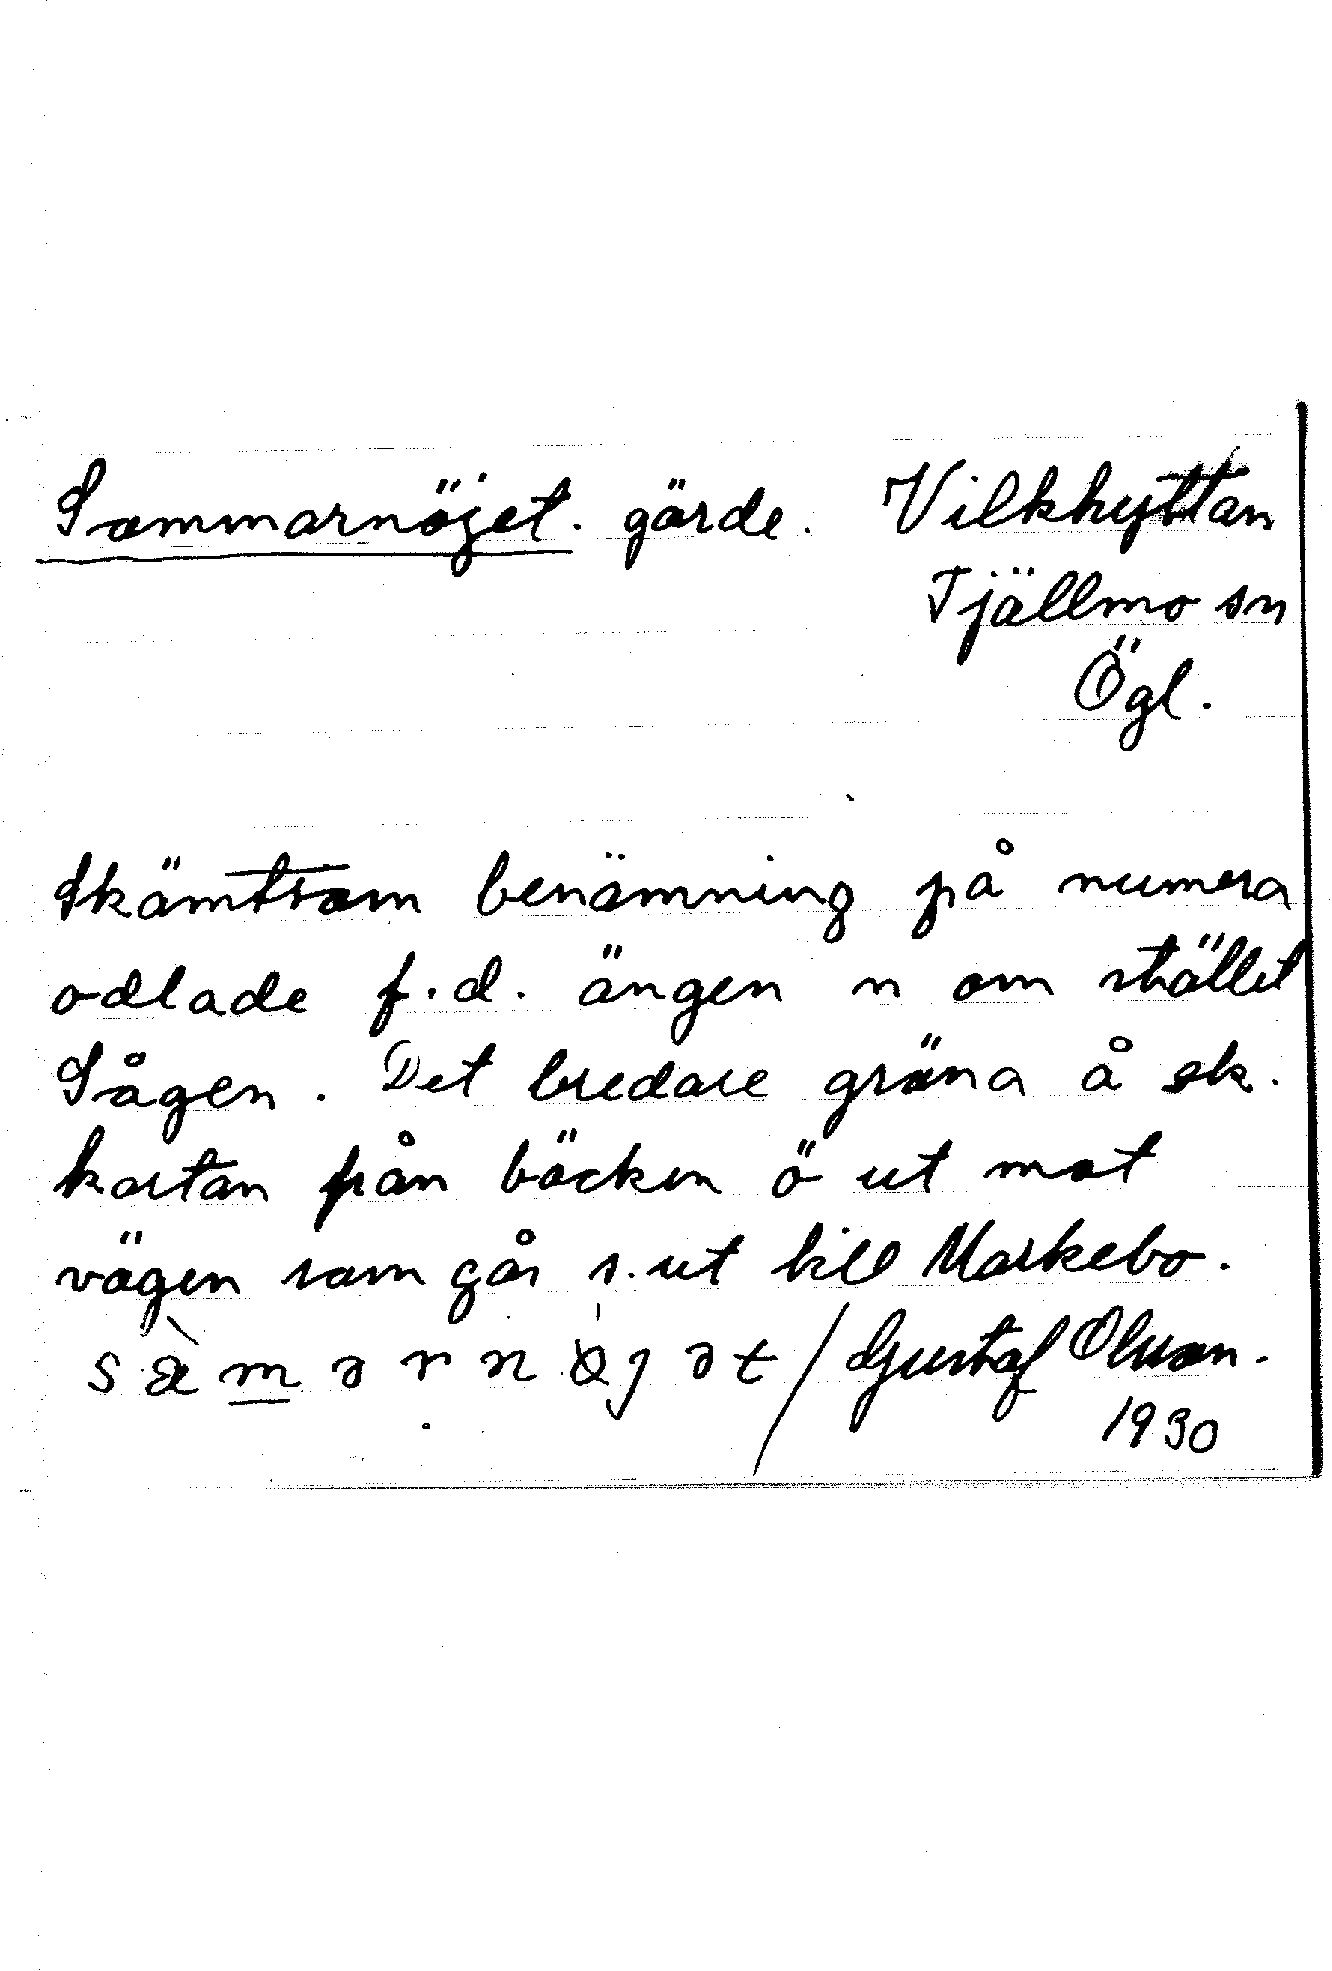 Sommarnöjet. gärde. Vilkhyttan
Tjällmo sn
Ögl.
Skämtsam benämning på numera
odlade f.d. ängen n om stället
Sågen. Det bredare gröna å ek.
kartan från bäcken ö ut mot
vägen som går s. ut till Markebo.
/ Gustaf Olsson.
1930